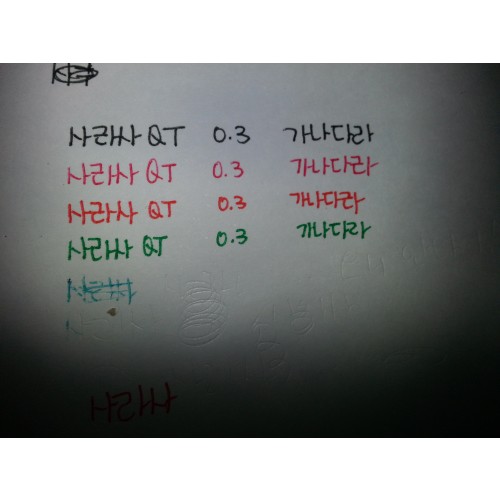 사라사 QT 0.3 가나다라
사라사 QT 0.3 가나다라
사라사 QT 0.3 가나다라
사라사 QT 0.3 가나다라
사라사